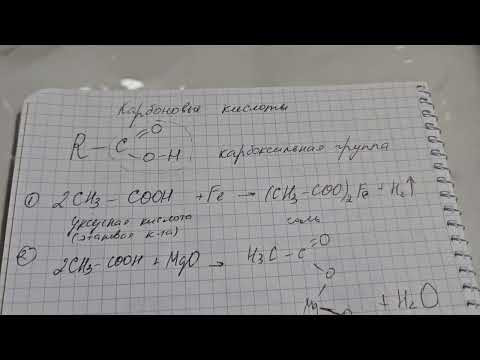 Карбоновые кислоты
R – C =O
O – H карбоксильная группа
① 2CH3 – COOH + Fe → (CH3 – COO)2Fe + H2↑
Уксусная кислота соль
(этановая к-та)
② 2CH3 – COOH + MgO → H3C – C =O
O
Mg
O + H2O